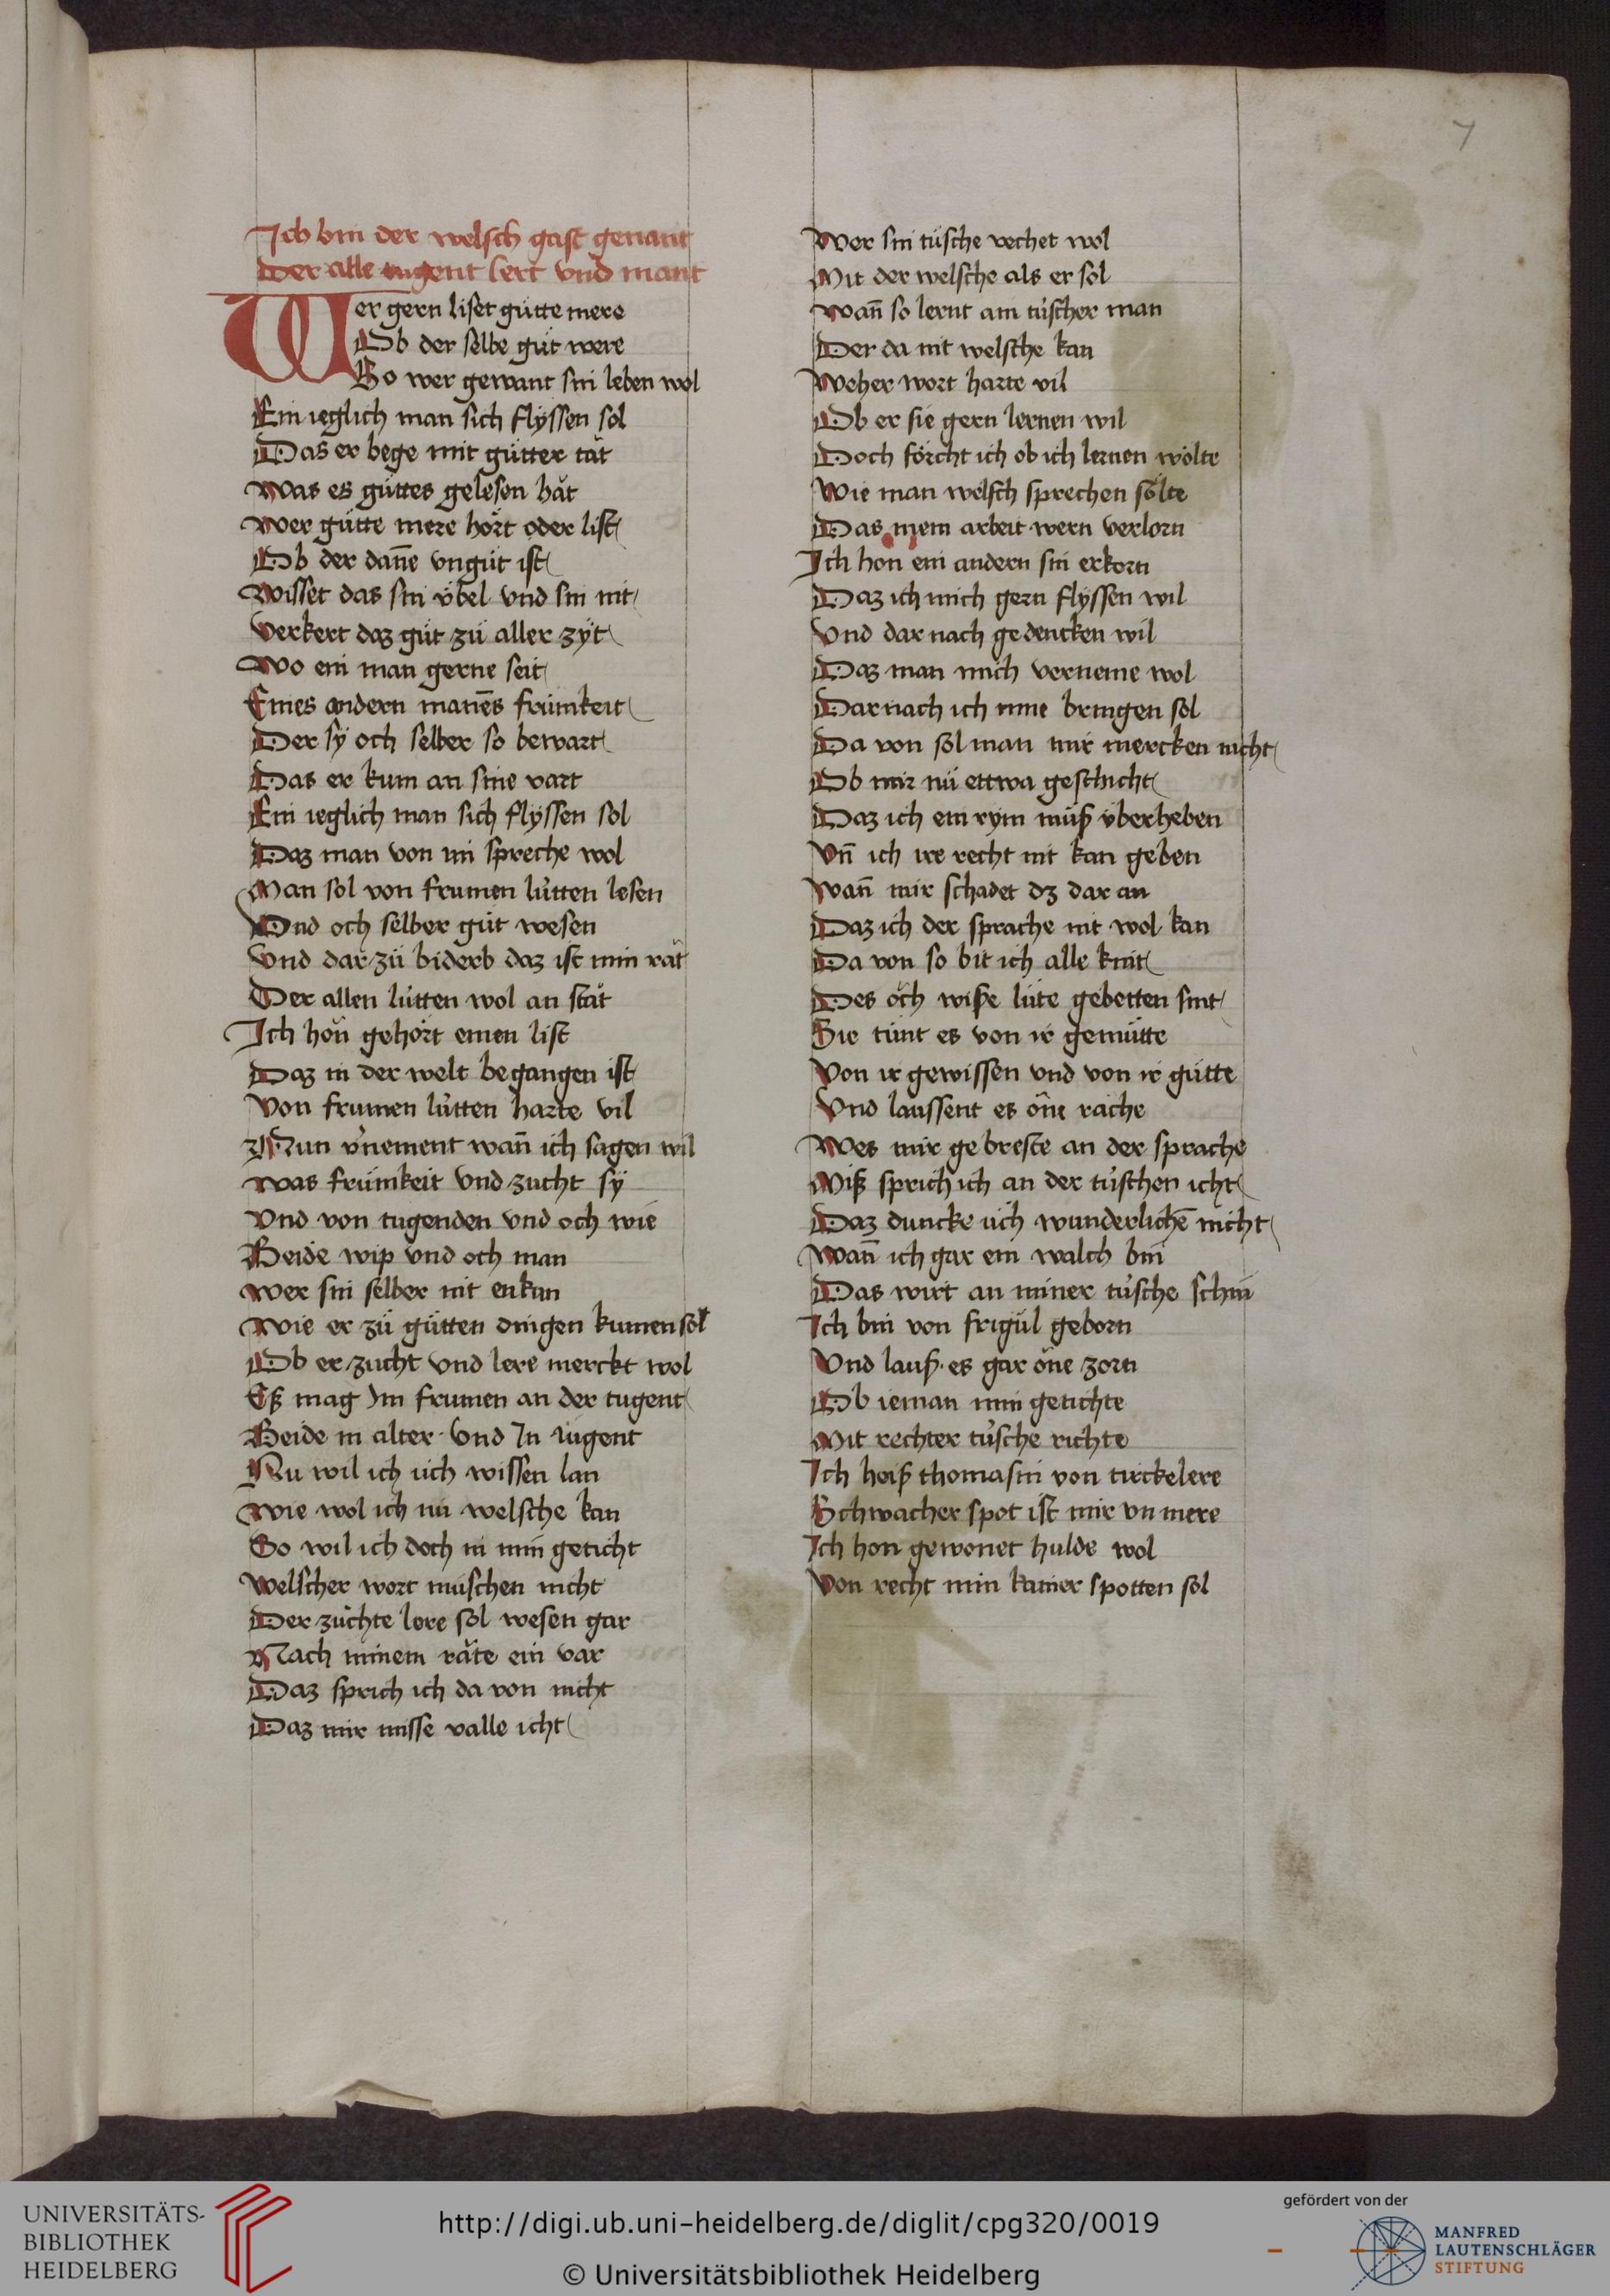 7
Ich bin der welsch gast genant
Der alle tugent lert vnd mant
Wer gern liset gütte mere
Ob der selbe güt were
So wer gewant sin leben wol
Ein ieglich man sich flyssen sol
Das er bege mit gütter tät
Was es güttes gelesen hät
Wer gütte mere hört oder list
Ob der dañe vngüt ist
Wisset das sin v̈bel vnd sin nit
Verkert daz güt zü aller zÿt
Wo ein man gerne seit
Eines andern mañes frümkeit
Der sÿ och selber so bewart
Das er kum an sine vart
Ein ieglich man sich flÿssen sol
Daz man von im spreche wol
Man sol von frumen lütten lesen
Vnd och selber güt wesen
Vnd dar zü biderb daz ist min rät
Der allen lütten wol an stät
Ich hön gehört einen list
Daz in der welt begangen ist
Von frumen lütten harte vil
Nun v'nement wañ ich sagen wil
Was frümkeit vnd zucht sÿ
Vnd von tugenden vnd och wie
Beide wip vnd och man
Wer sin selber nit enkan
Wie er zü gütten dingen kumen sol
Ob er zucht vnd lere merckt wol
Eß mag Im frumen an der tugent
Beide in alter vnd In iugent
Nu wil ich üch wissen lan
Wie wol ich nü welsche kan
So wil ich doch in min geticht
Welscher wort müschen nicht
Der züchte lere sol wesen gar
Nach minem räte ein var
Daz sprich ich da von nicht
Daz mir misse valle icht
Wer sin tüsche rechet wol
Mit der welsche als er sol
Wañ so lernt am tüscher man
Der da nit welsche kan
Weher wort harte vil
Ob er sie gern lernen wil
Doch förcht ich ob ich lernen wölte
Wie man welsch sprechen sölte
Das mem arbeit wern verlorn
Ich hon ein andern sin erkorn
Daz ich mich gern flÿssen wil
Vnd dar nach gedencken wil
Daz man mich verneme wol
Dar nach ich mine bringen sol
Da von sol man mir mercken nicht
Ob mir nü ettwa geschicht
Daz ich ein rÿm müß v̈berheben
Vñ ich ire recht nit kan geben
Wañ mir schadet dz dar an
Daz ich der sprache nit wol kan
Da von so bit ich alle kint
Des öch wiße lüte gebetten sint
Sie tünt es von ir gemütte
Von ir gewissen vnd von ir gütte
Vnd laussent es öne rache
Wes mir gebreste an der sprache
Miß sprich ich an der tüschen icht
Daz duncke üch wunderlichē nicht
Wañ ich gar ein walch bin
Das wirt an miner tüsche schin
Ich bin von frigül geborn
Vnd lauß es gar öne zorn
Ob ieman min getichte
Mit rechter tüsche richte
Ich heiß thomasin von tirckelere
Schwacher spot ist mir vn mere
Ich hon gewonet hulde wol
Von recht min kainer spotten sol
UNIVERSITÄTS-
BIBLIOTHEK
HEIDELBERG
http://digi.ub.uni-heidelberg.de/diglit/cpg320/0019
© Universitätsbibliothek Heidelberg
gefördert von der
MANFRED
LAUTENSCHLÄGER
STIFTUNG